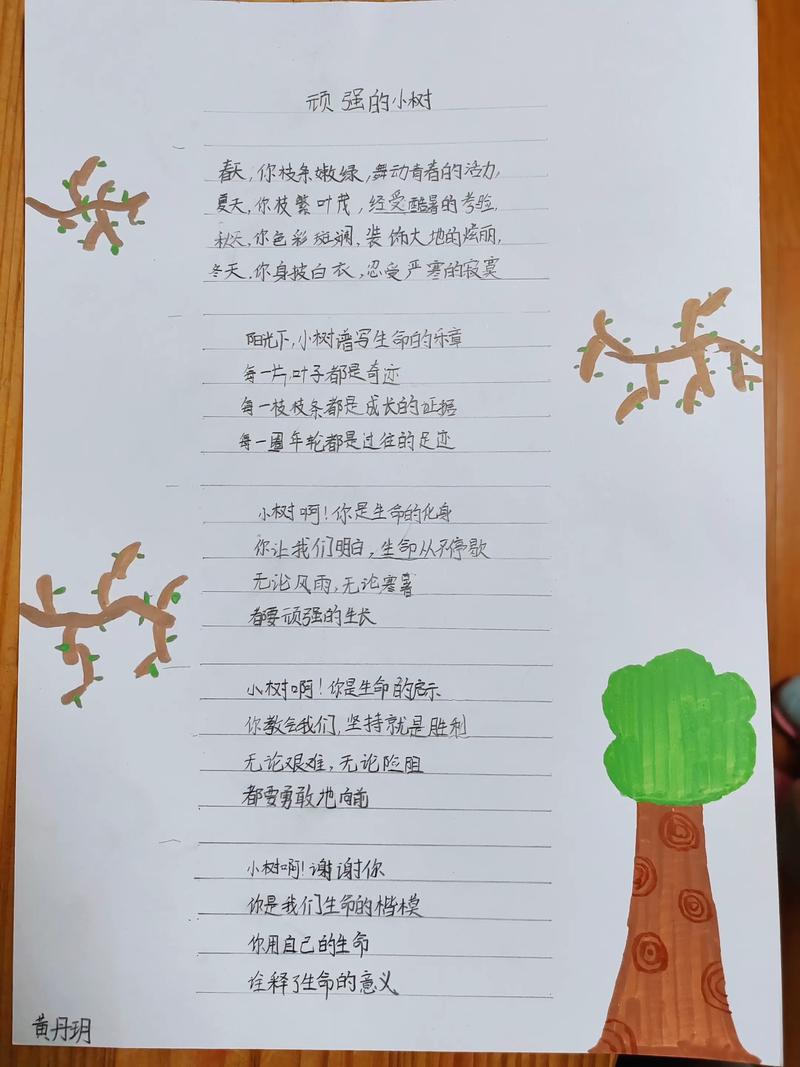 顽强的小树
春天,你枝条嫩绿,舞动青春的活力,
夏天,你枝繁叶茂,经受酷暑的考验,
秋天,你色彩斑斓,装饰大地的炫丽,
冬天,你身披白衣,忍受严寒的寂寞
阳光下,小树谱写生命的乐章
每一片叶子都是奇迹
每一枝枝条都是成长的证据
每一圈年轮都是过往的足迹
小树啊!你是生命的化身
你让我们明白,生命从不停歇
无论风雨,无论寒暑
都要顽强的生长
小树啊!你是生命的启示
你教会我们,坚持就是胜利
无论艰难,无论险阻
都要勇敢地向前
小树啊!谢谢你
你是我们生命的楷模
你用自己的生命
诠释了生命的意义
黄丹玥